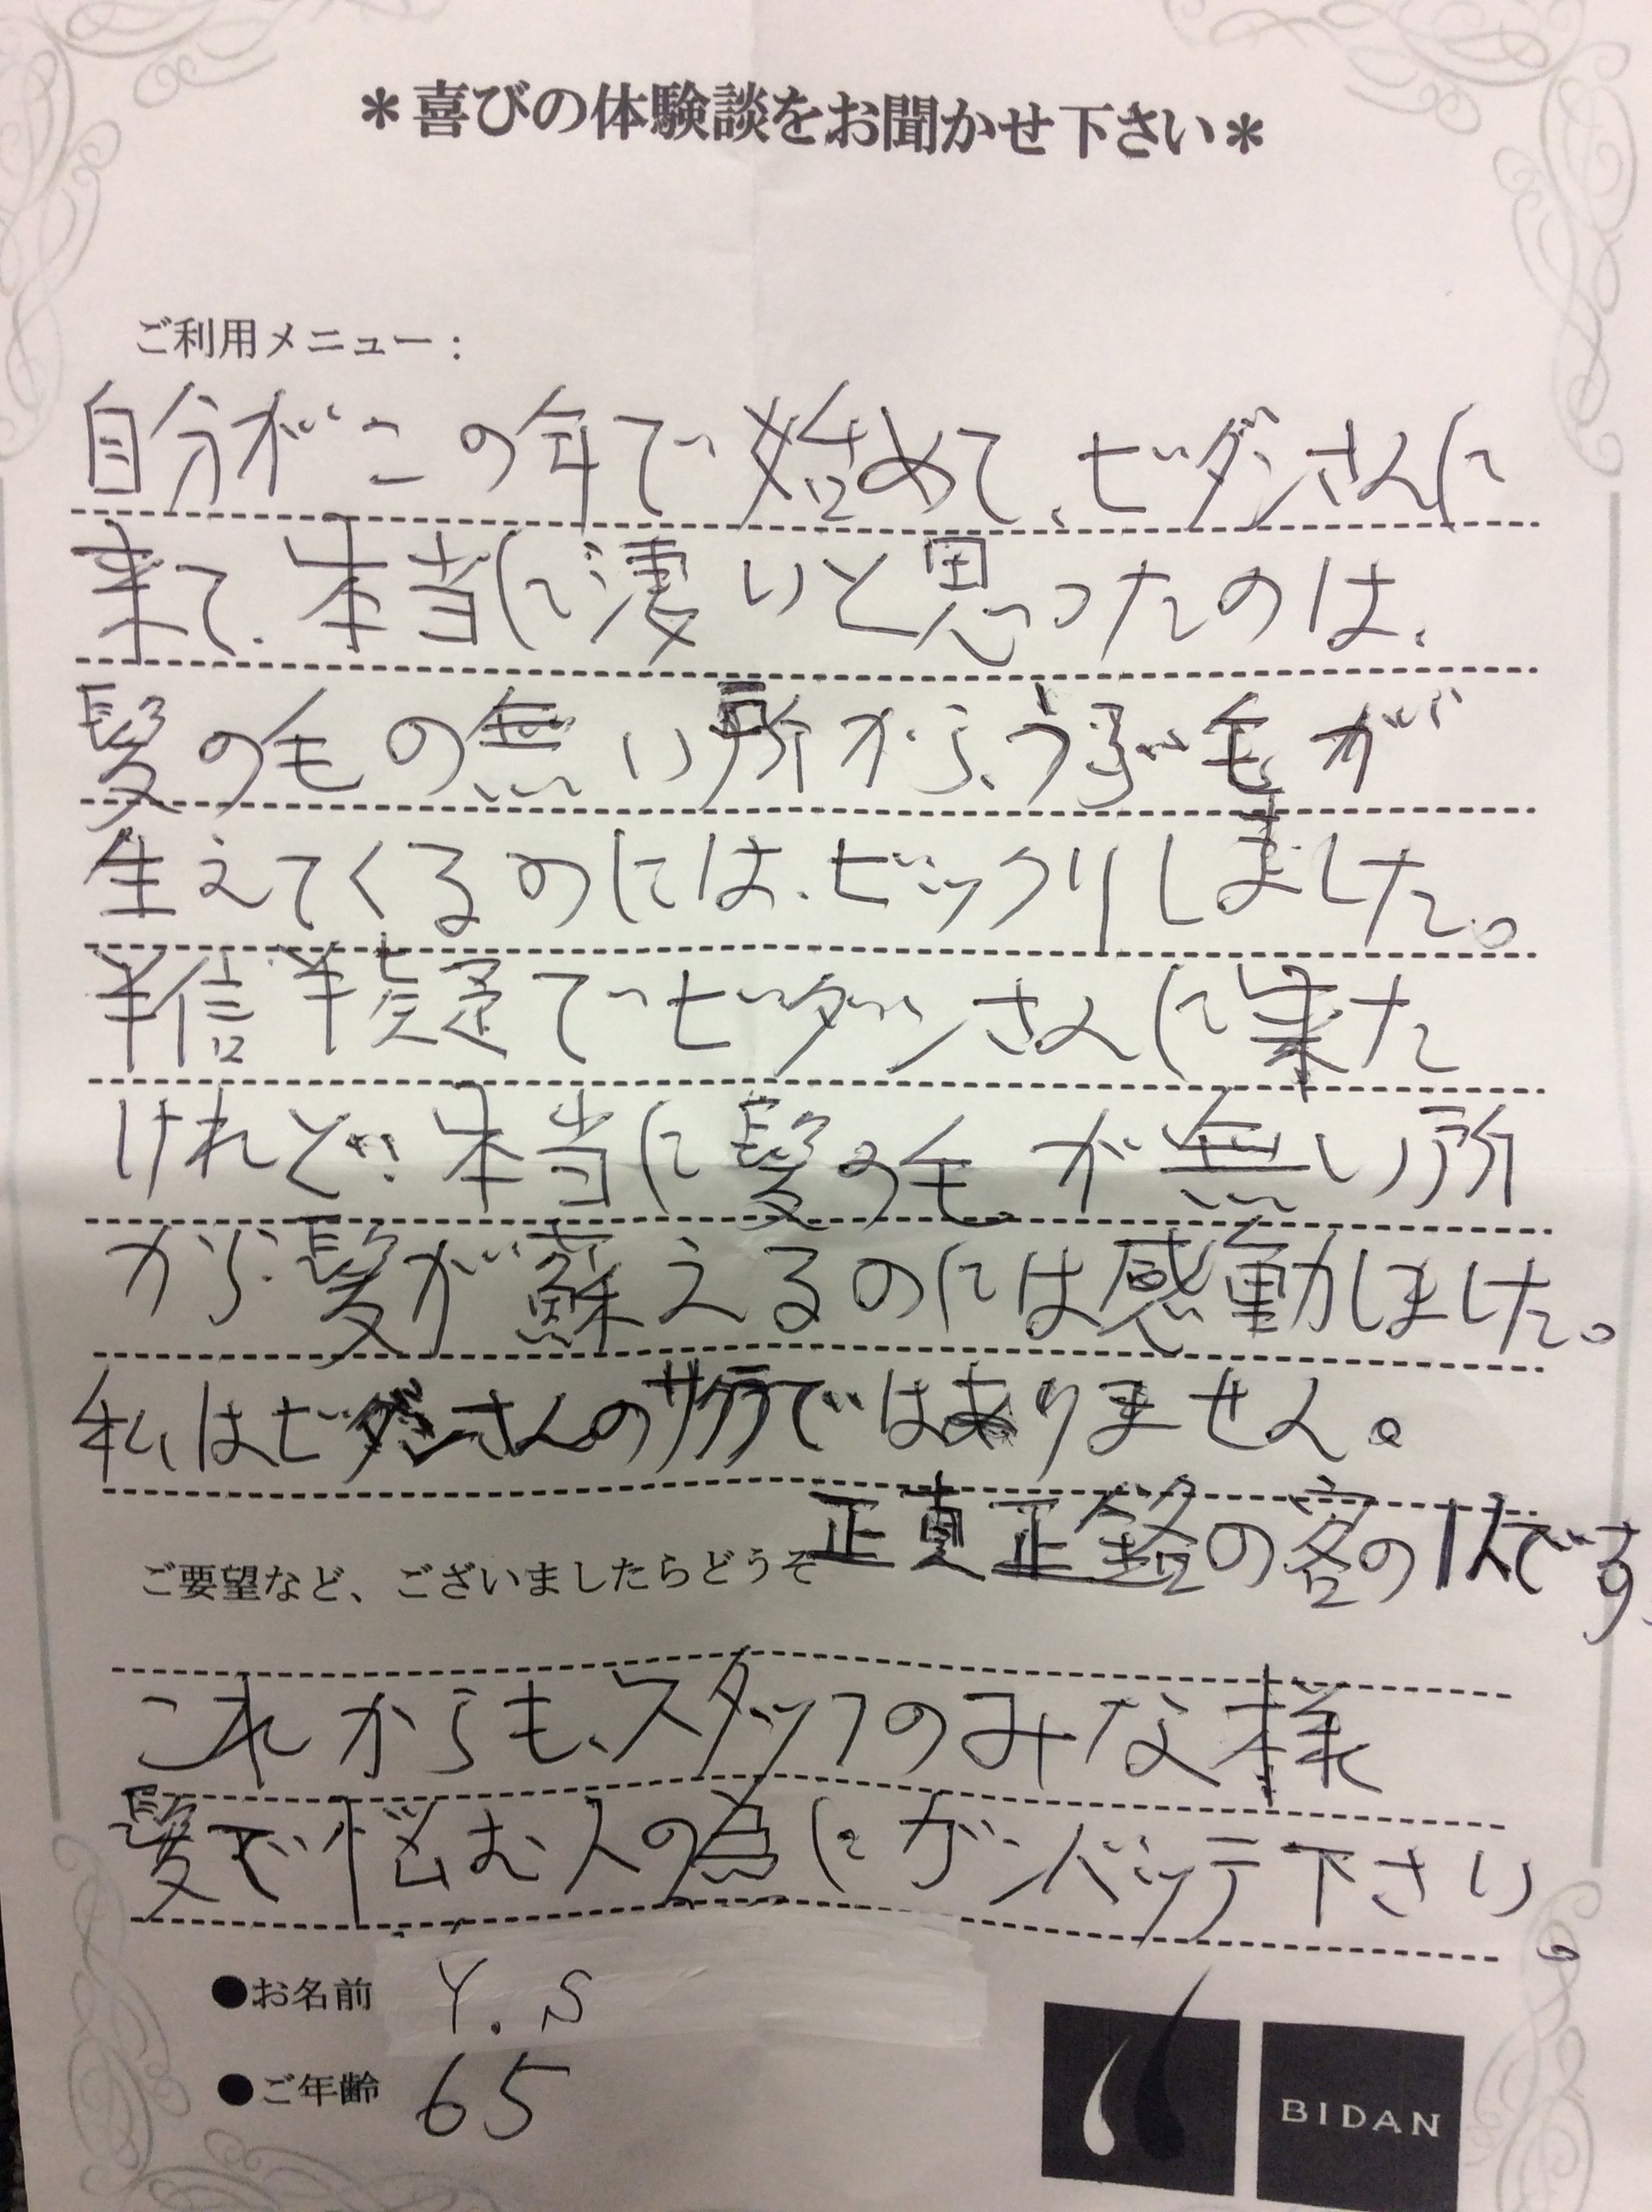 ＊喜びの体験談をお聞かせ下さい＊
ご利用メニュー：
自分がこの年で始めて、ビダンさんに
来て、本当に凄いと思ったのは、
髪の毛の無い所から、うぶ毛が
生えてくるのには、ビックリしました。
半信半疑でビダンさんに来た
けれど…本当に髪の毛が無い所
から髪が蘇えるのには感動しました。
私はビダンさんのサクラではありません。
正真正銘の客の1人です。
ご要望など、ございましたらどうぞ
これからも、スタッフのみな様
髪で悩む人の為にガンバッテ下さい。
●お名前 Y.S
●ご年齢 65
BIDAN